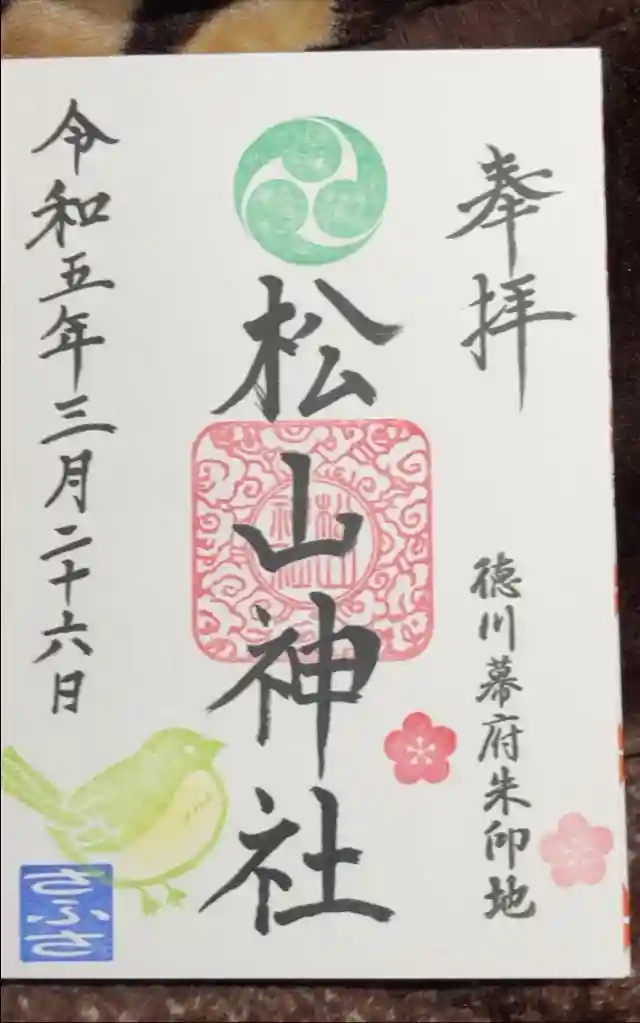 奉拝
徳川幕府朱印地
松山神社
松山
神社
令和五年三月二十六日